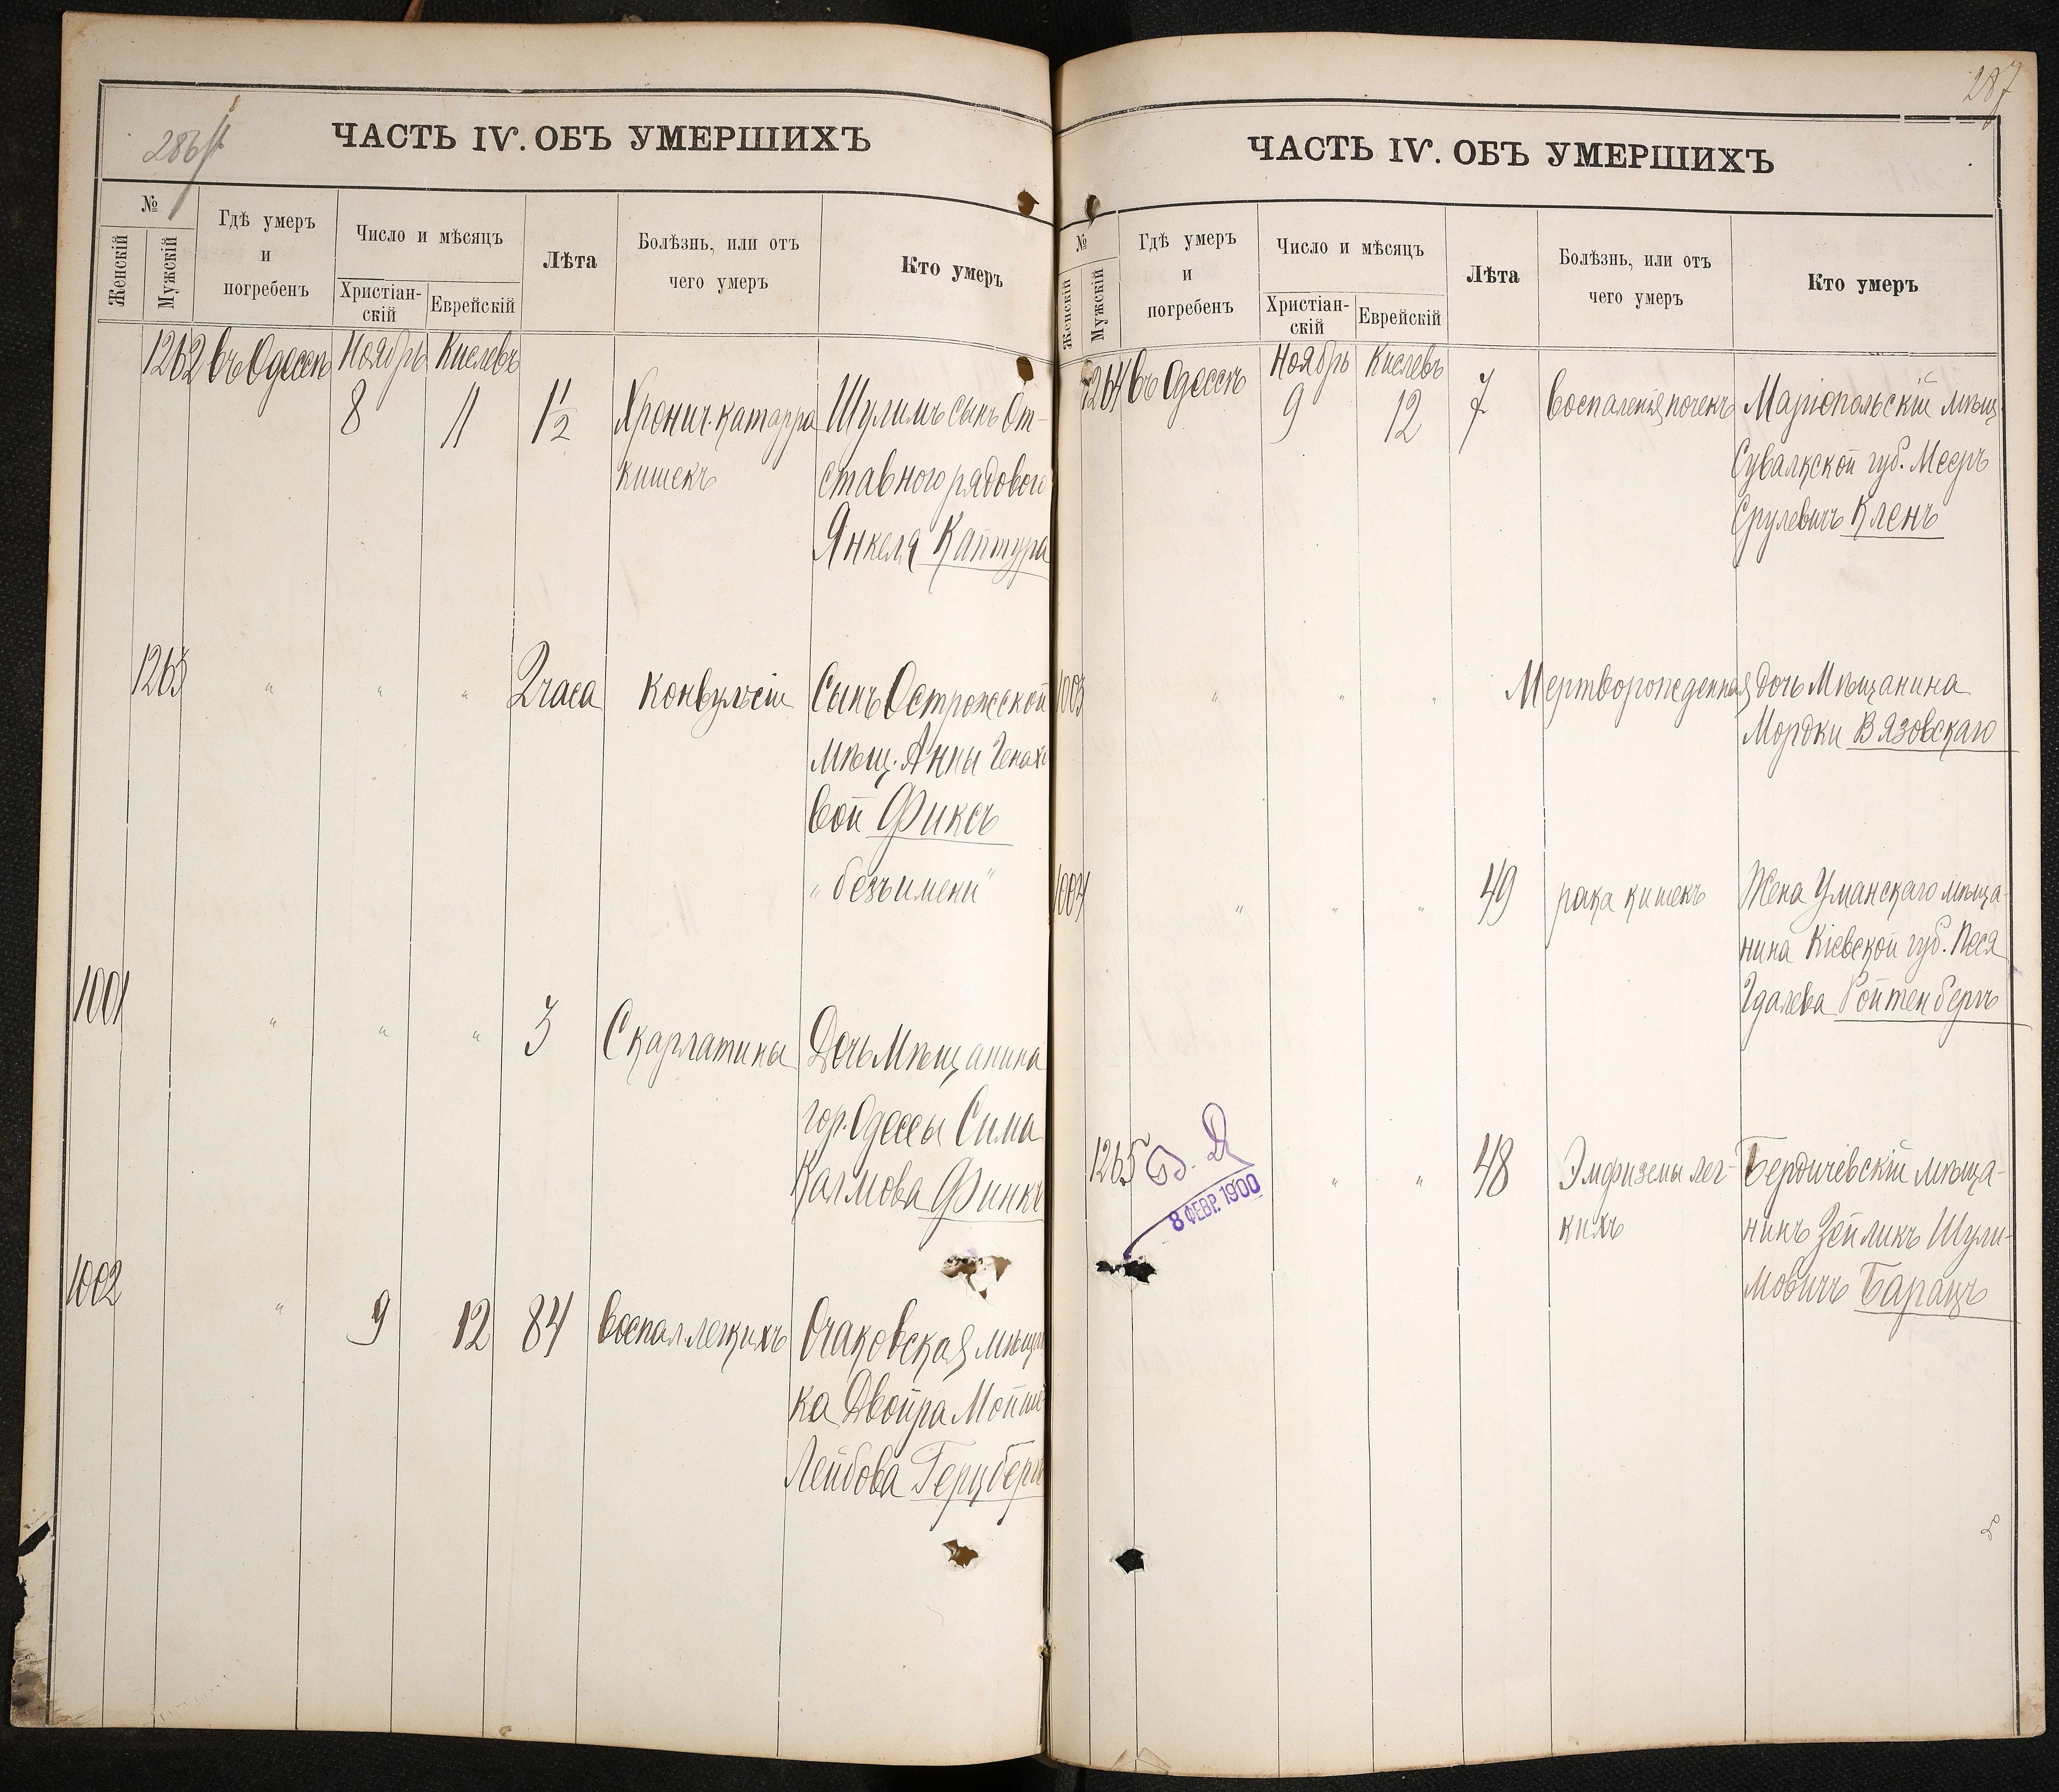 286 об
ЧАСТЬ IV. ОБЪ УМЕРШИХЪ
№
Женскій
Мужскій
Гдѣ умеръ
и
погребенъ
Число и мѣсяцъ
Христіан-
скій
Еврейскій
Лѣта
Болѣзнь, или отъ
чего умеръ
Кто умеръ
1262 въ Одессѣ Ноябрь Кислевъ
8 11 1½ Хронич. катарра Шулимъ сынъ От-
кишекъ ставного рядового
Янкеля Каптура
1263 " " " 2 часа Конвульсіи Сынъ Острожской
мѣщ. Анны Генахо
вой Фиксъ
"безъ имени"
1001 " " " 3 Скарлатины Дочь Мѣщанина
гор. Одессы Сима
Калмова Финкъ
1002 " 9 12 84 Воспал легкихъ Очаковская мѣщан
ка Двойра Мойше
Лейбова Герцбергъ
287
ЧАСТЬ IV. ОБЪ УМЕРШИХЪ
№
Женскій
Мужскій
Гдѣ умеръ
и
погребенъ
Число и мѣсяцъ
Христіан-
скій
Еврейскій
Лѣта
Болѣзнь, или отъ
чего умеръ
Кто умеръ
1264 въ Одессѣ Ноябрь Кислевъ
9 12 7 Воспаленія почекъ Маріопольскій мѣщ.
Сувалкской губ. Мееръ
Срулевичъ Кленъ
1003 " " " Мертворожденная дочь Мѣщанина
Мордки Вязовскаго
1004 " " " 49 рака кишекъ Жена Уманскаго мѣща-
нина Кіевской губ. Песя
Гдалева Ройтенбергъ
1265 " " 48 Эмфиземы лег- Бердичевскій мѣща-
кихъ нинъ Зейликъ Шули-
мовичъ Баранъ
8 ФЕВР. 1900